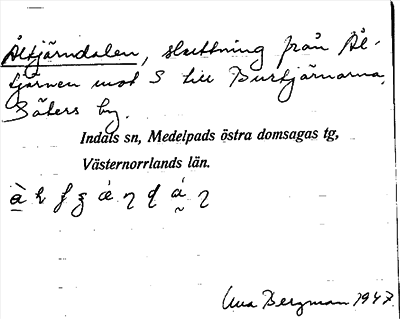 Åltjärndalen, sluttning från Ål-
tjärnen mot S till Burtjärnarna,
Säters by.
Indals sn, Medelpads östra domsagas tg,
Västernorrlands län.
Bergman 1947